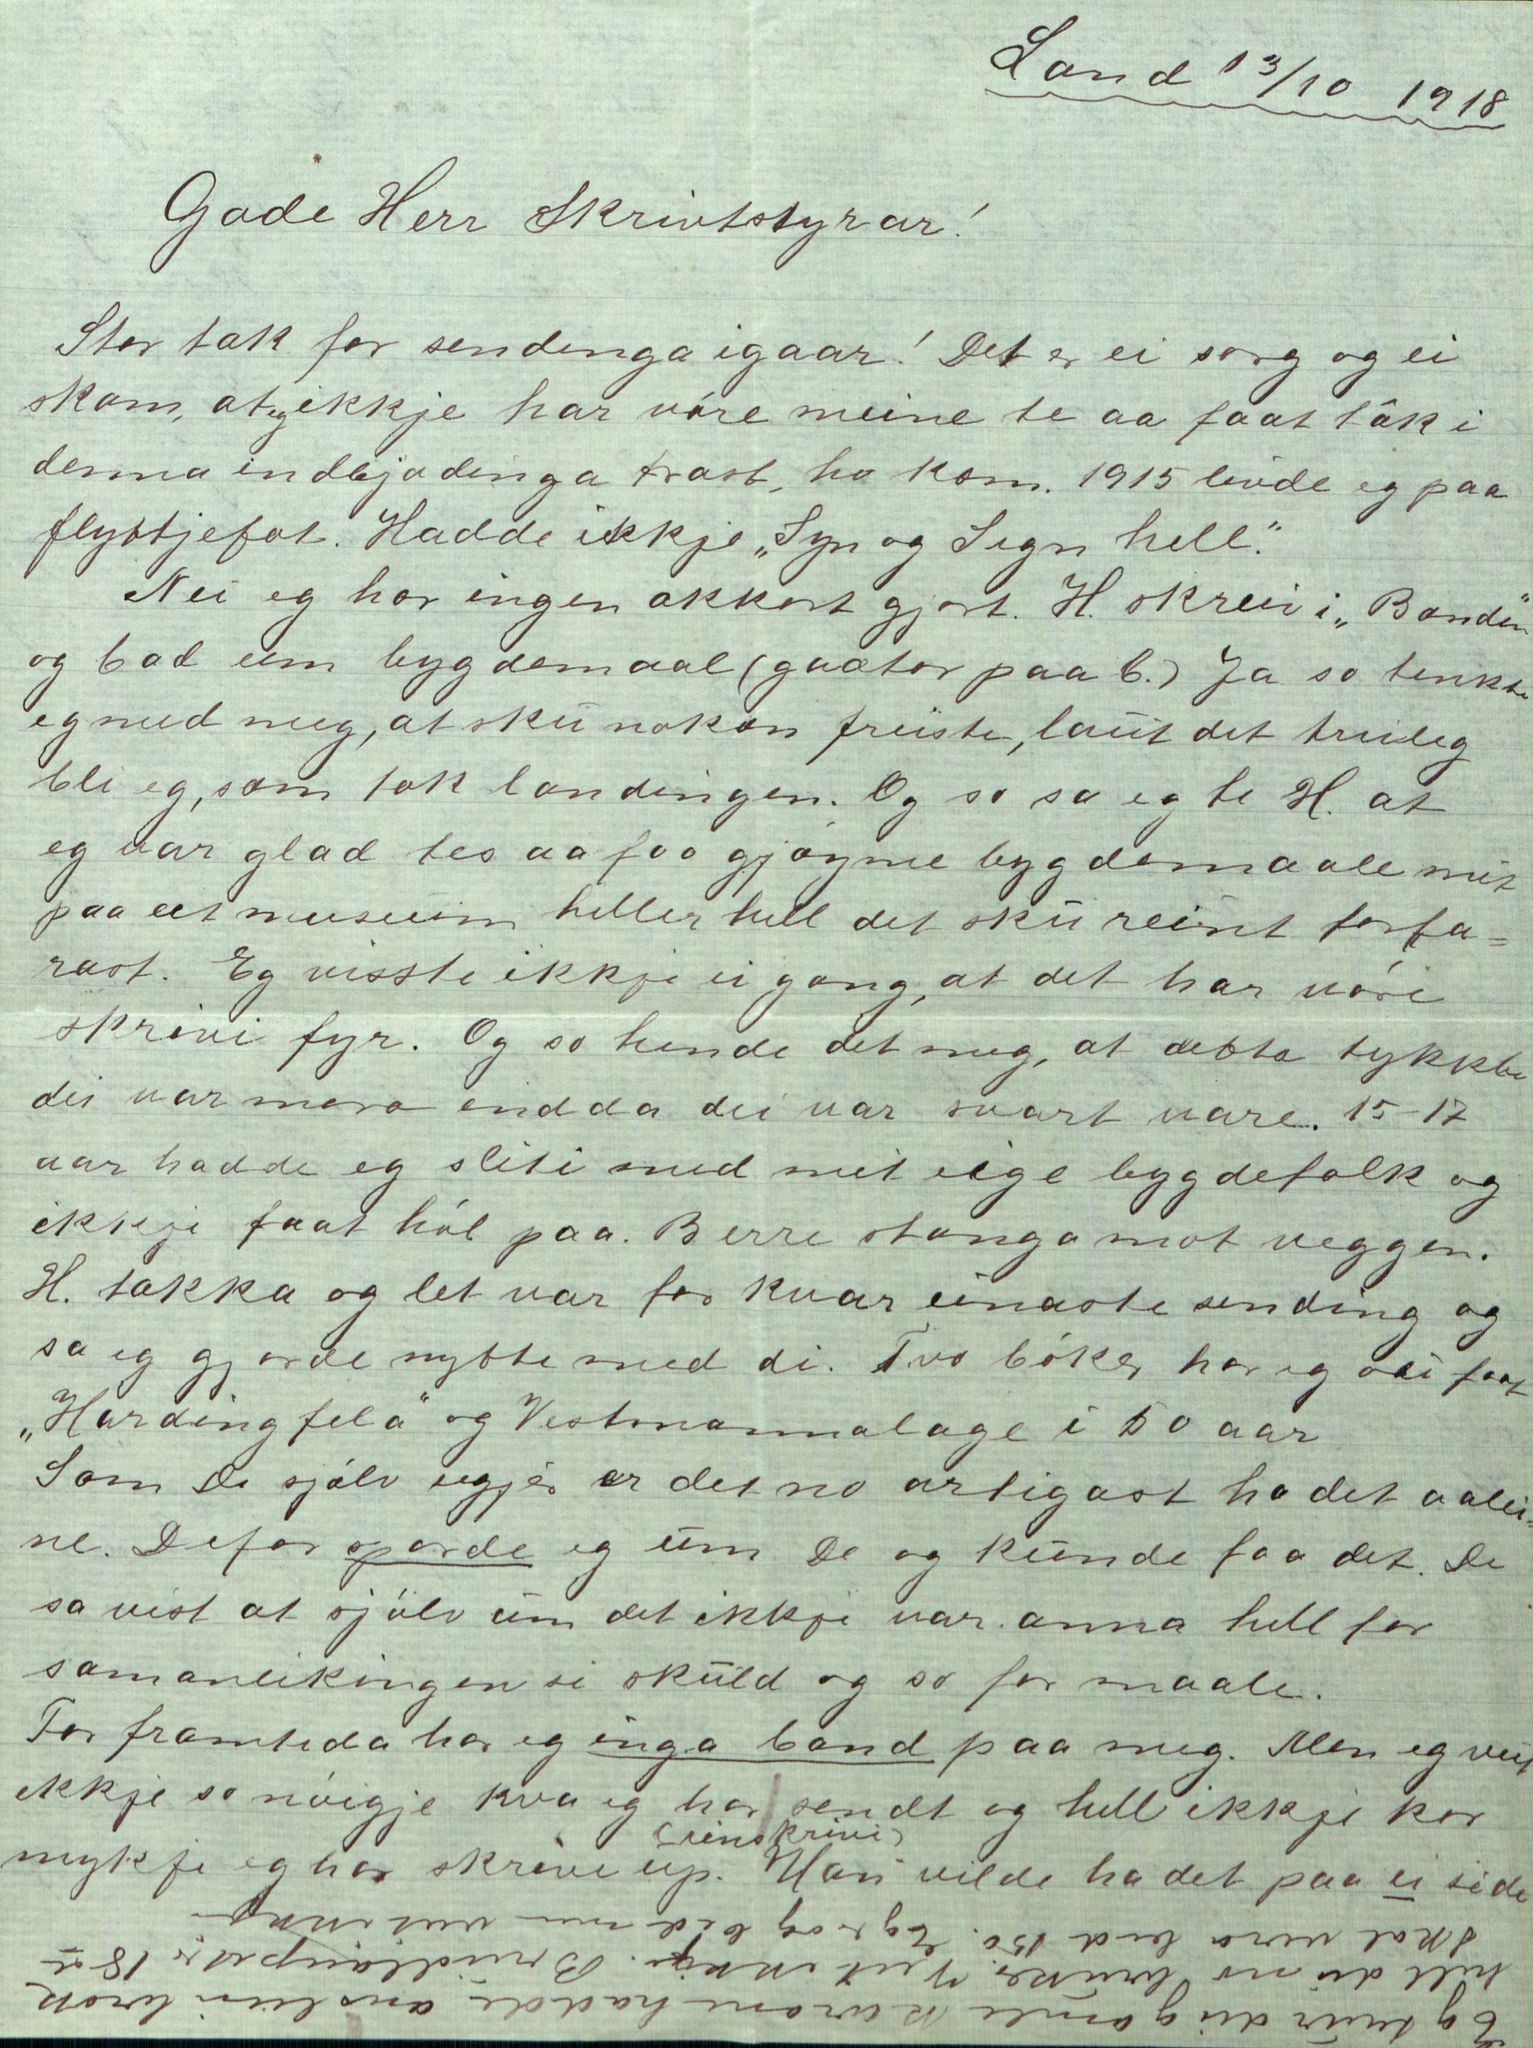 Land 13/10 1918
Gode Herr Skrivtstyrar!
Stor tak for sendinga igaar! Det er ei sorg og ei
skam, at eg ikkje har vóre meine te aa faat tàk i
denna indbjodinga trast, ho kom. 1915 livde eg paa
flyttjefot. Hadde ikkje „Syn og Segn hell".
Nei eg har ingen akkort gjort. H. skrei i „Bonden"
og bad um bygdemaal (gaator paa b.) Ja so tenkte
eg med meg, at sku nokon freiste, laut det truleg
bli eg, som tok landingen. Og so sa eg te H. at
eg var glad tes aa faa gjóyme bygdemaale mit
paa eit museum heller hell det sku reint forfa=
rast. Eg visste ikkje ei gong, at det har vóre
skrivi fyr. Og so hende det meg, at detta tykkte
dei var moro endda dei var svart vare. 15-17
aar hadde eg sliti med mit eige bygdefolk og
ikkje faat hól paa. Berre stanga mot veggen.
H. takka og let var for kvar einaste sending og
sa eg gjorde nytte med di. Tvo bóker har eg òei faat
„Hardingfela" og Vestmannalage i 50 aar
Som De sjólv segjer er det no artigast ha det aalei=
ne. Defor sporde eg um De og kunde faa det. De
sa vist at sjólv um det ikkje var anna hell for
samanlikingen si skuld og so for maale.
For framtida har eg inga band paa meg. Men eg veit
ikkje so nóigje kva eg har sendt og hell ikkje kor
(reinskrivi)
mykje eg har skrive up. Han vilde ha det paa ei side
Eg trur dei gamle karane hadde
hell du no bruke. Veit ikkje. 18
skal vera bed 150. Eg og veit ikkje